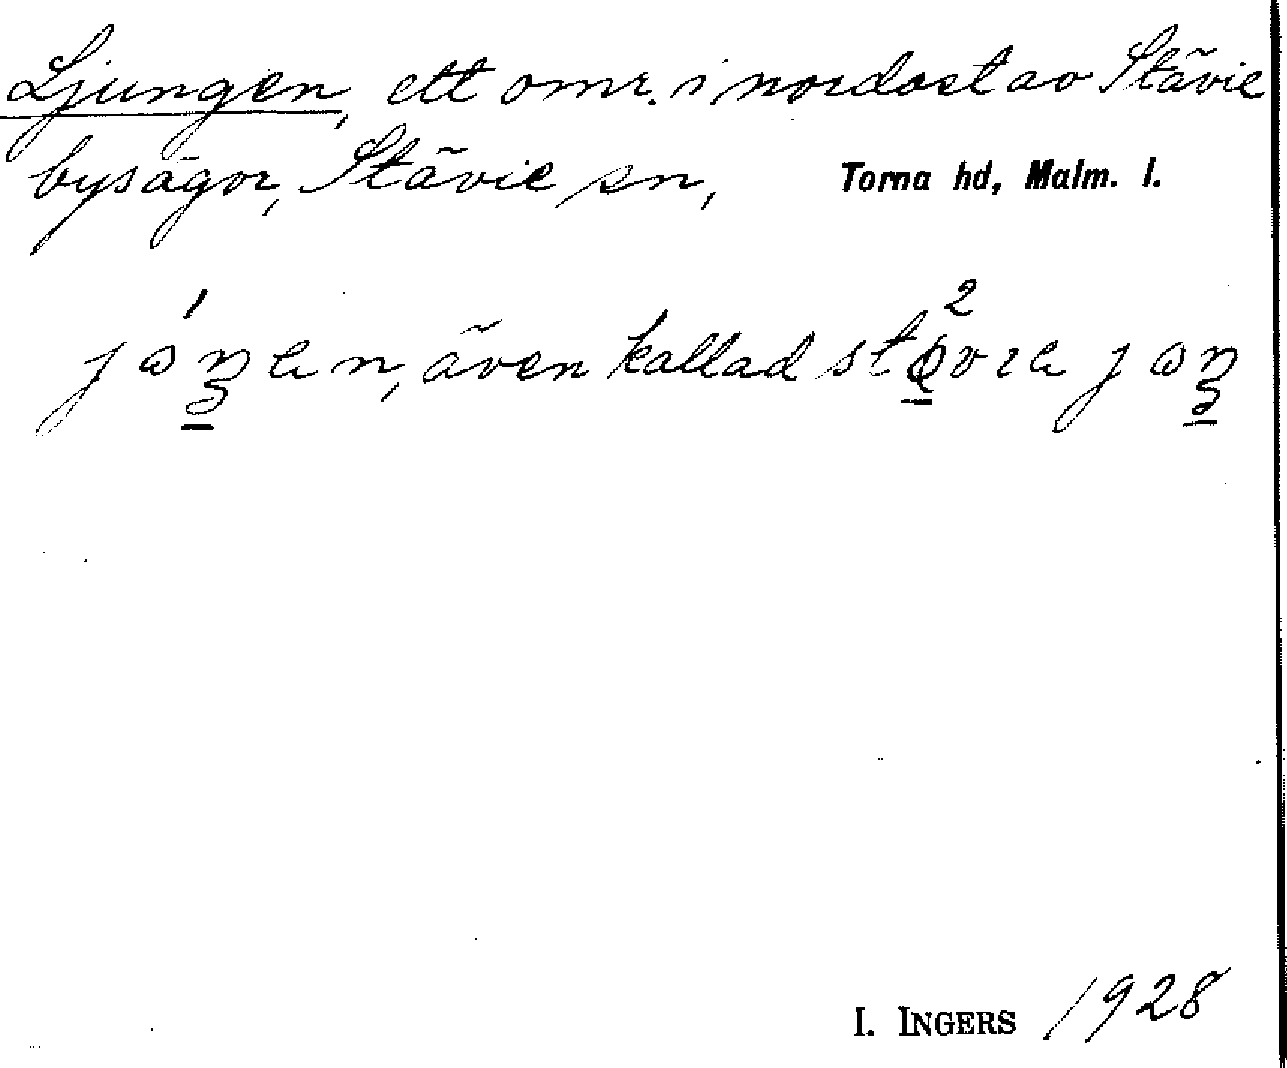 Ljungen, ett omr. i nordost av Stävie
bys ägor, Stävie sn, Torna hd, Malm. l.
även kallad
I. INGERS 1928